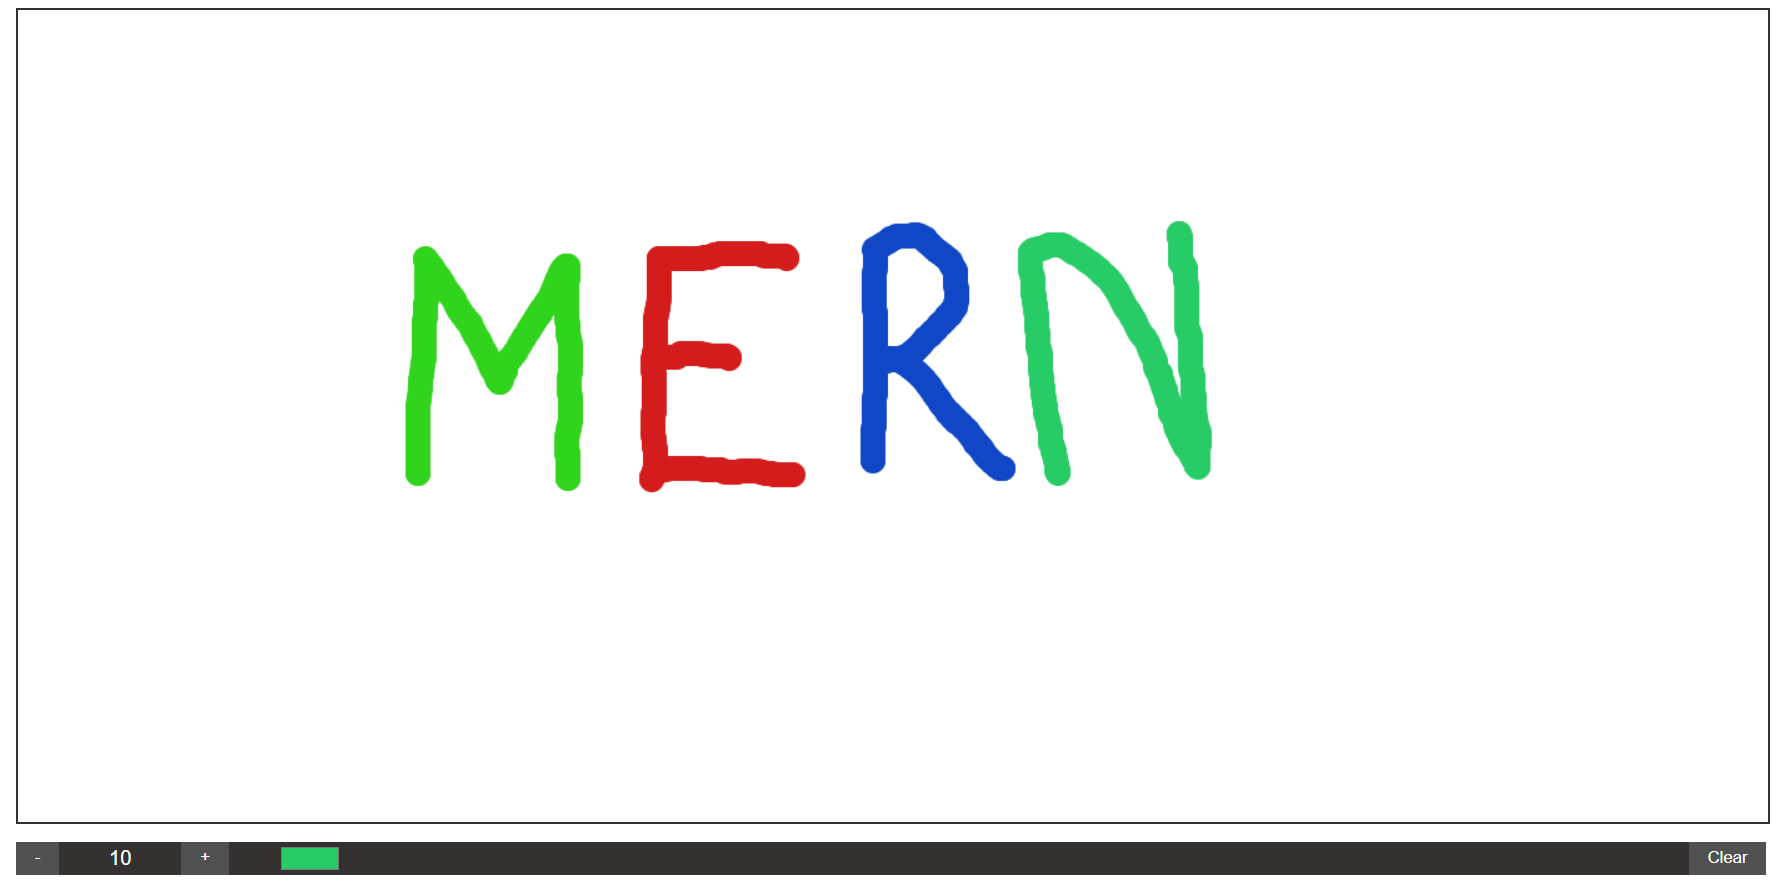 MERN
- 10 + Clear